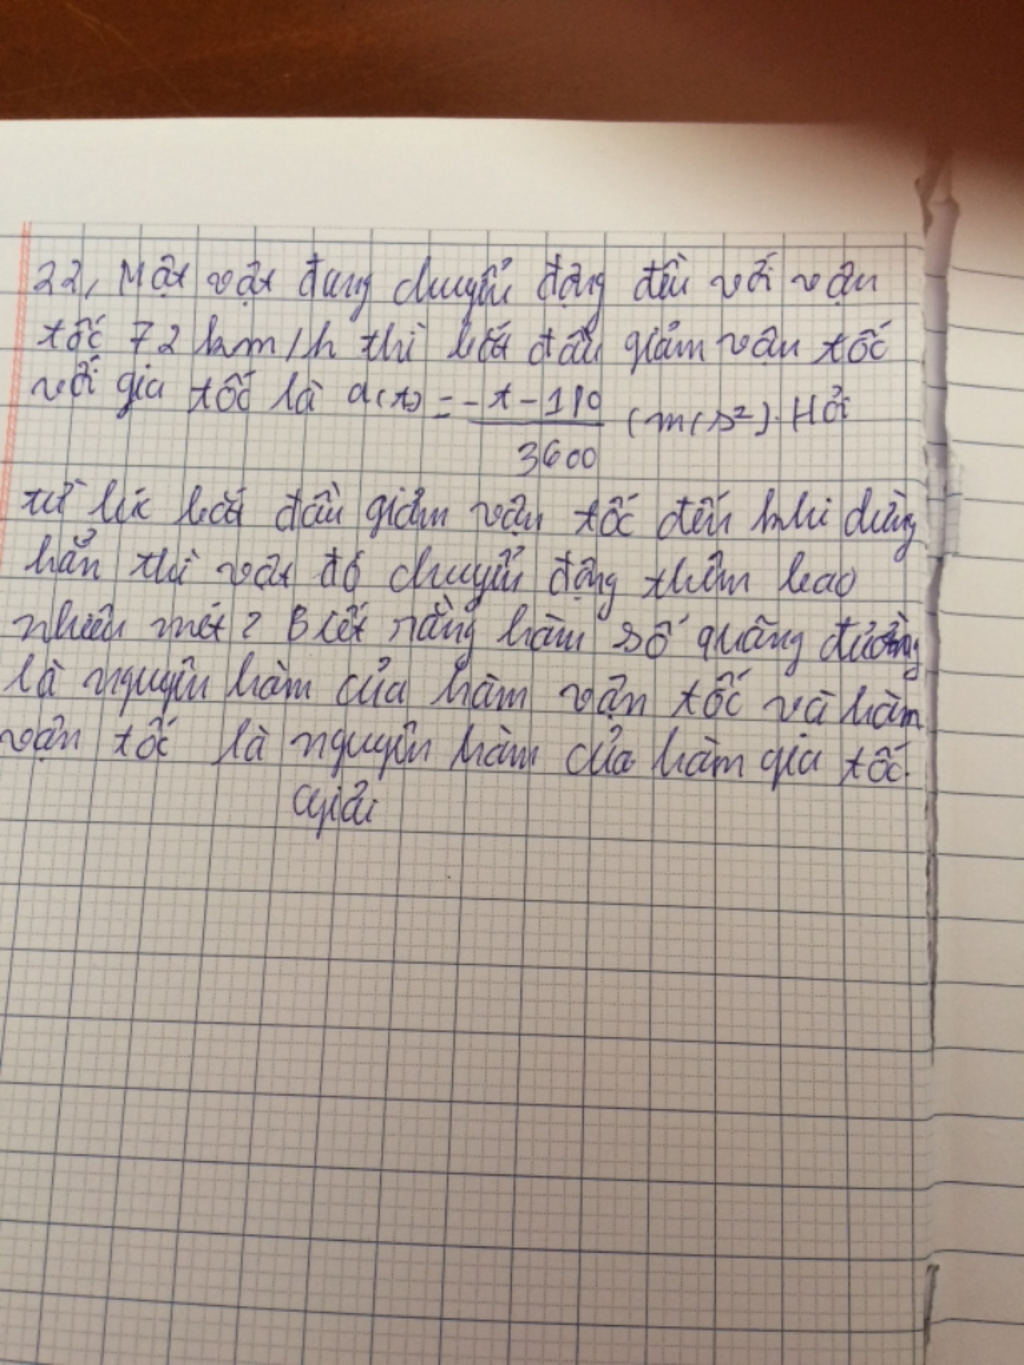 22, Một vật đang chuyển động đều với vận
tốc 72 km/h thì bắt đầu giảm vận tốc
với gia tốc là a(t) = -t-110/3600 (m/s²). Hỏi
từ lúc bắt đầu giảm vận tốc đến khi dừng
hẳn thì vật đó chuyển động thêm bao
nhiêu mét? Biết rằng hàm số quãng đường
là nguyên hàm của hàm vận tốc và hàm
vận tốc là nguyên hàm của hàm gia tốc.
Giải